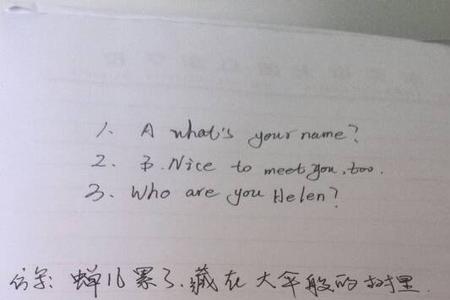 1. A what's your name?
2. B. Nice to meet you, too.
3. Who are you Helen?
仿写: 蝉儿累了.藏在大伞般的树里.